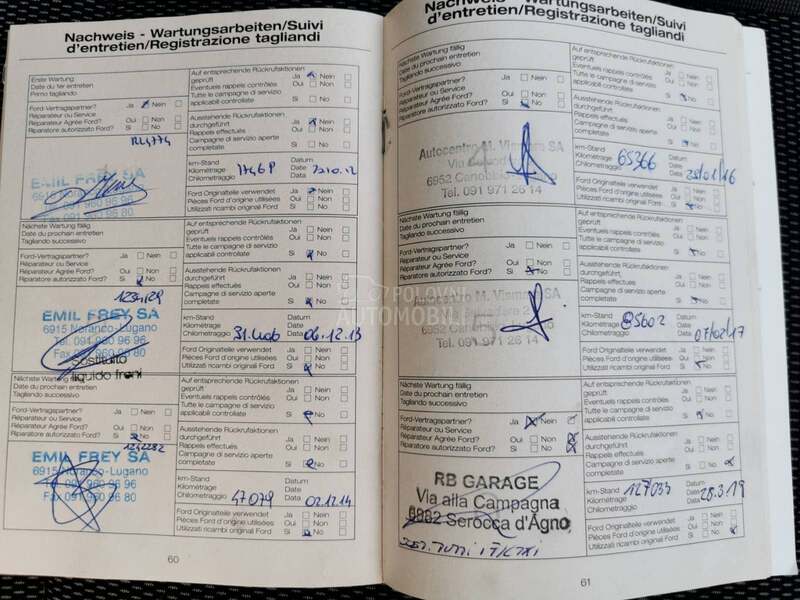 Nachweis - Wartungsarbeiten/Suivi
d'entretien/Registrazione tagliandi
Erste Wartung
Date du 1er entretien
Primo tagliando
Auf entsprechende Rückrufaktionen
geprüft Ja Nein
Eventuels rappels contrôlés Oui Non
Tutte le campagne di servizio
applicabili controllate Si No
Ford-Vertragspartner? Ja Nein
Réparateur ou Service
Réparateur Agréé Ford? Oui Non
Riparatore autorizzato Ford? Si No
Ausstehende Rückrufaktionen
durchgeführt Ja Nein
Rappels effectués Oui Non
Campagne di servizio aperte
completate Si No
EMIL FREY SA
6915 Noranco-Lugano
Tel. 091 960 96 96
Fax 091 960 96 80
km-Stand
Kilométrage
Chilometraggio
Datum
Date
Data
Ford Originalteile verwendet Ja Nein
Pièces Ford d'origine utilisées Oui Non
Utilizzati ricambi originali Ford Si No
Nächste Wartung fällig
Date du prochain entretien
Tagliando successivo
Auf entsprechende Rückrufaktionen
geprüft Ja Nein
Eventuels rappels contrôlés Oui Non
Tutte le campagne di servizio
applicabili controllate Si No
Ford-Vertragspartner? Ja Nein
Réparateur ou Service
Réparateur Agréé Ford? Oui Non
Riparatore autorizzato Ford? Si No
Ausstehende Rückrufaktionen
durchgeführt Ja Nein
Rappels effectués Oui Non
Campagne di servizio aperte
completate Si No
EMIL FREY SA
6915 Noranco-Lugano
Tel. 091 960 96 96
Fax 091 960 96 80
sostituito
liquido freni
km-Stand
Kilométrage
Chilometraggio 31.406
Datum
Date
Data 06.12.13
Ford Originalteile verwendet Ja Nein
Pièces Ford d'origine utilisées Oui Non
Utilizzati ricambi originali Ford Si No
Nächste Wartung fällig
Date du prochain entretien
Tagliando successivo
Auf entsprechende Rückrufaktionen
geprüft Ja Nein
Eventuels rappels contrôlés Oui Non
Tutte le campagne di servizio
applicabili controllate Si No
Ford-Vertragspartner? Ja Nein
Réparateur ou Service
Réparateur Agréé Ford? Oui Non
Riparatore autorizzato Ford? Si No
Ausstehende Rückrufaktionen
durchgeführt Ja Nein
Rappels effectués Oui Non
Campagne di servizio aperte
completate Si No
EMIL FREY SA
6915 Noranco-Lugano
Tel. 091 960 96 96
Fax 091 960 96 80
km-Stand
Kilométrage
Chilometraggio 47079
Datum
Date
Data 02.12.14
Ford Originalteile verwendet Ja Nein
Pièces Ford d'origine utilisées Oui Non
Utilizzati ricambi originali Ford Si No
60
Nachweis - Wartungsarbeiten/Suivi
d'entretien/Registrazione tagliandi
Nächste Wartung fällig
Date du prochain entretien
Tagliando successivo
Auf entsprechende Rückrufaktionen
geprüft Ja Nein
Eventuels rappels contrôlés Oui Non
Tutte le campagne di servizio
applicabili controllate Si No
Ford-Vertragspartner? Ja Nein
Réparateur ou Service
Réparateur Agréé Ford? Oui Non
Riparatore autorizzato Ford? Si No
Ausstehende Rückrufaktionen
durchgeführt Ja Nein
Rappels effectués Oui Non
Campagne di servizio aperte
completate Si No
Autocentro M. SA
6952 Canobbio
Tel. 091 971 26 14
km-Stand
Kilométrage 65366
Chilometraggio
Datum
Date
Data 25/01/16
Ford Originalteile verwendet Ja Nein
Pièces Ford d'origine utilisées Oui Non
Utilizzati ricambi originali Ford Si No
Nächste Wartung fällig
Date du prochain entretien
Tagliando successivo
Auf entsprechende Rückrufaktionen
geprüft Ja Nein
Eventuels rappels contrôlés Oui Non
Tutte le campagne di servizio
applicabili controllate Si No
Ford-Vertragspartner? Ja Nein
Réparateur ou Service
Réparateur Agréé Ford? Oui Non
Riparatore autorizzato Ford? Si No
Ausstehende Rückrufaktionen
durchgeführt Ja Nein
Rappels effectués Oui Non
Campagne di servizio aperte
completate Si No
POLOVNI
AUTOMOBILI
Autocentro M. SA
6952 Canobbio
Tel. 091 971 26 14
km-Stand
Kilométrage
Chilometraggio
Datum
Date
Data 07/02/17
Ford Originalteile verwendet Ja Nein
Pièces Ford d'origine utilisées Oui Non
Utilizzati ricambi originali Ford Si No
Nächste Wartung fällig
Date du prochain entretien
Tagliando successivo
Auf entsprechende Rückrufaktionen
geprüft Ja Nein
Eventuels rappels contrôlés Oui Non
Tutte le campagne di servizio
applicabili controllate Si No
Ford-Vertragspartner? Ja Nein
Réparateur ou Service
Réparateur Agréé Ford? Oui Non
Riparatore autorizzato Ford? Si No
Ausstehende Rückrufaktionen
durchgeführt Ja Nein
Rappels effectués Oui Non
Campagne di servizio aperte
completate Si No
RB GARAGE
Via alla Campagna
6982 Serocca d'Agno
km-Stand
Kilométrage 127033
Chilometraggio
Datum
Date 28.3.19
Data
Ford Originalteile verwendet Ja Nein
Pièces Ford d'origine utilisées Oui Non
Utilizzati ricambi originali Ford Si No
61